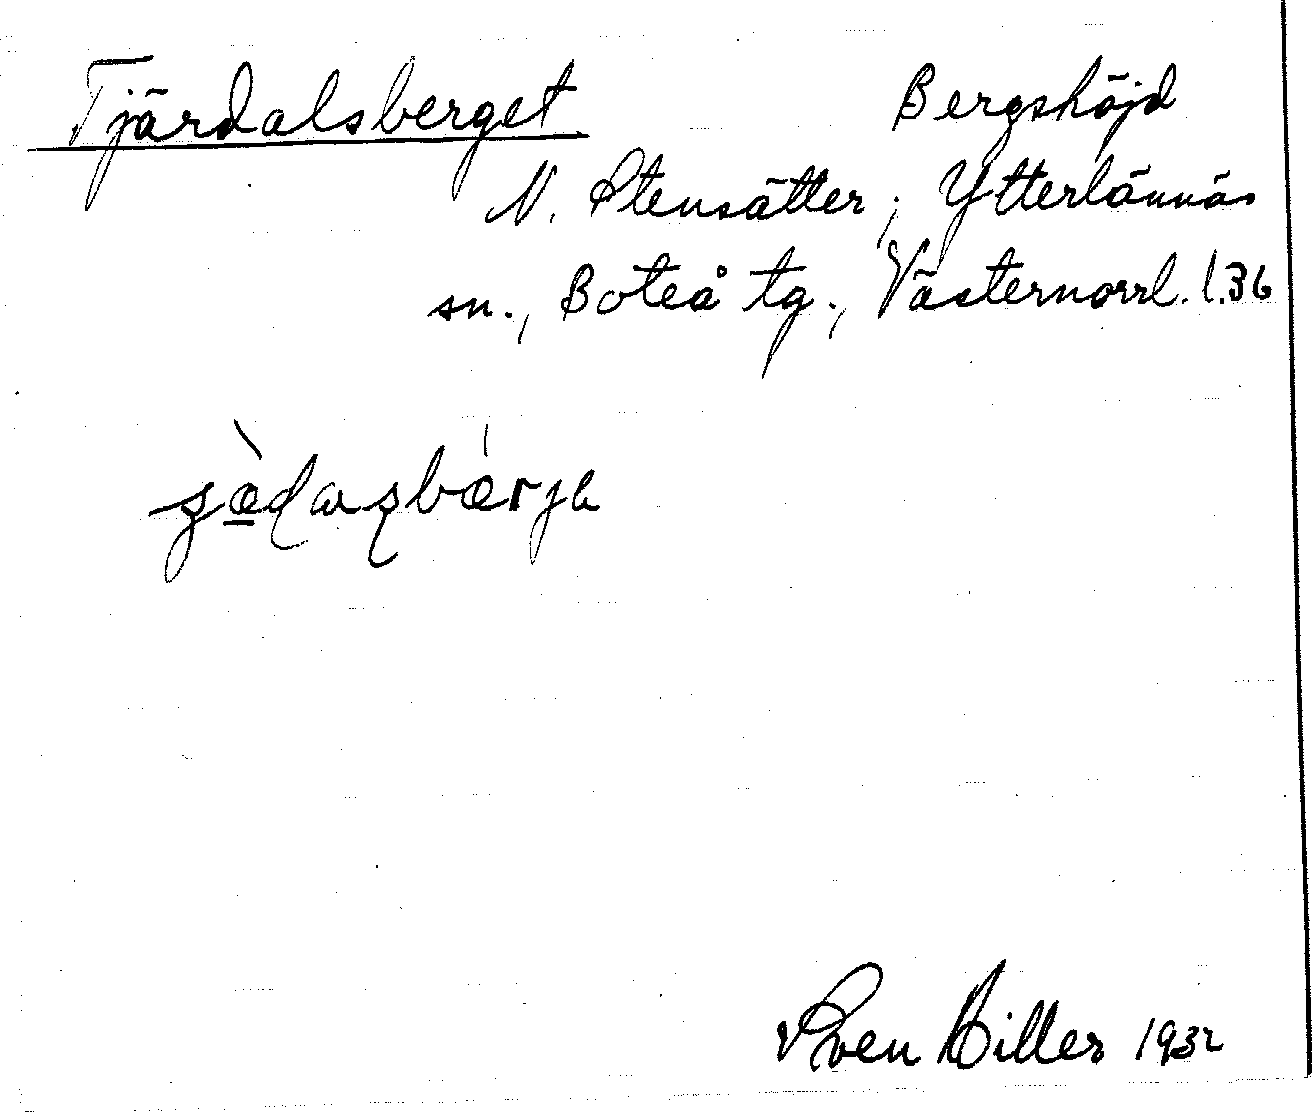 Tjärdalsberget Bergshöjd
N. Stensätter, Ytterlännäs
sn., Boteå tg., Västernorrl. l.36
Sven Hiller 1932